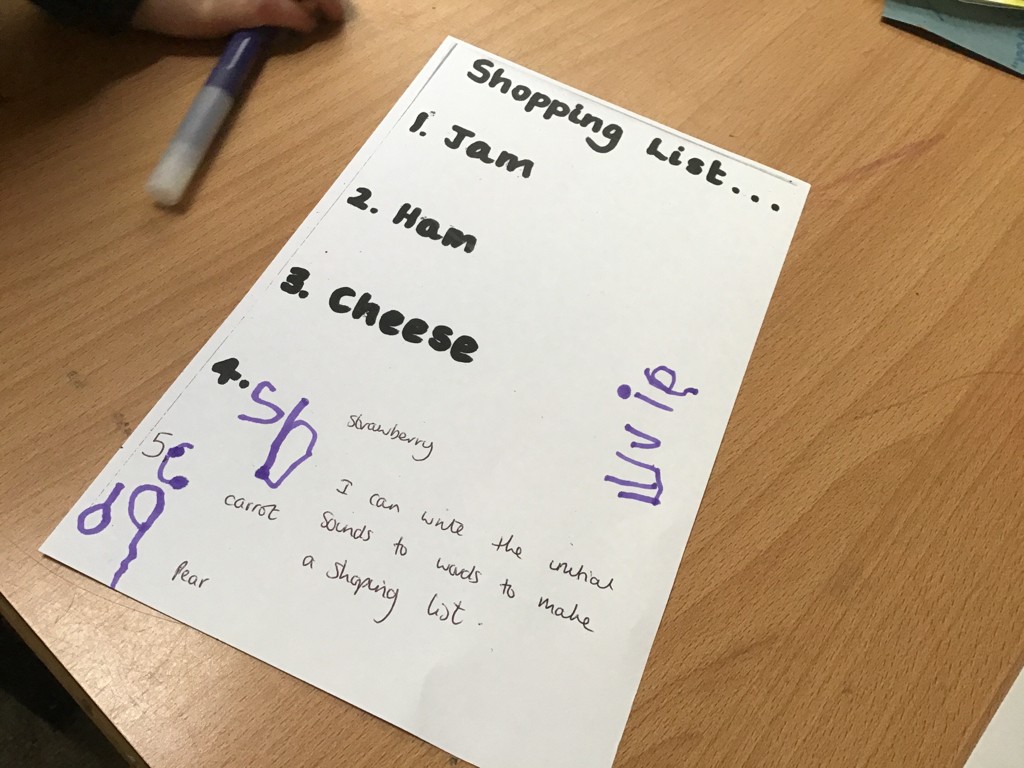 Shopping List...
1. Jam
2. Ham
3. Cheese
4. Sb strawberry
5 c carrot
Pear
I can write the initial
sounds to words to make
a shoping list.